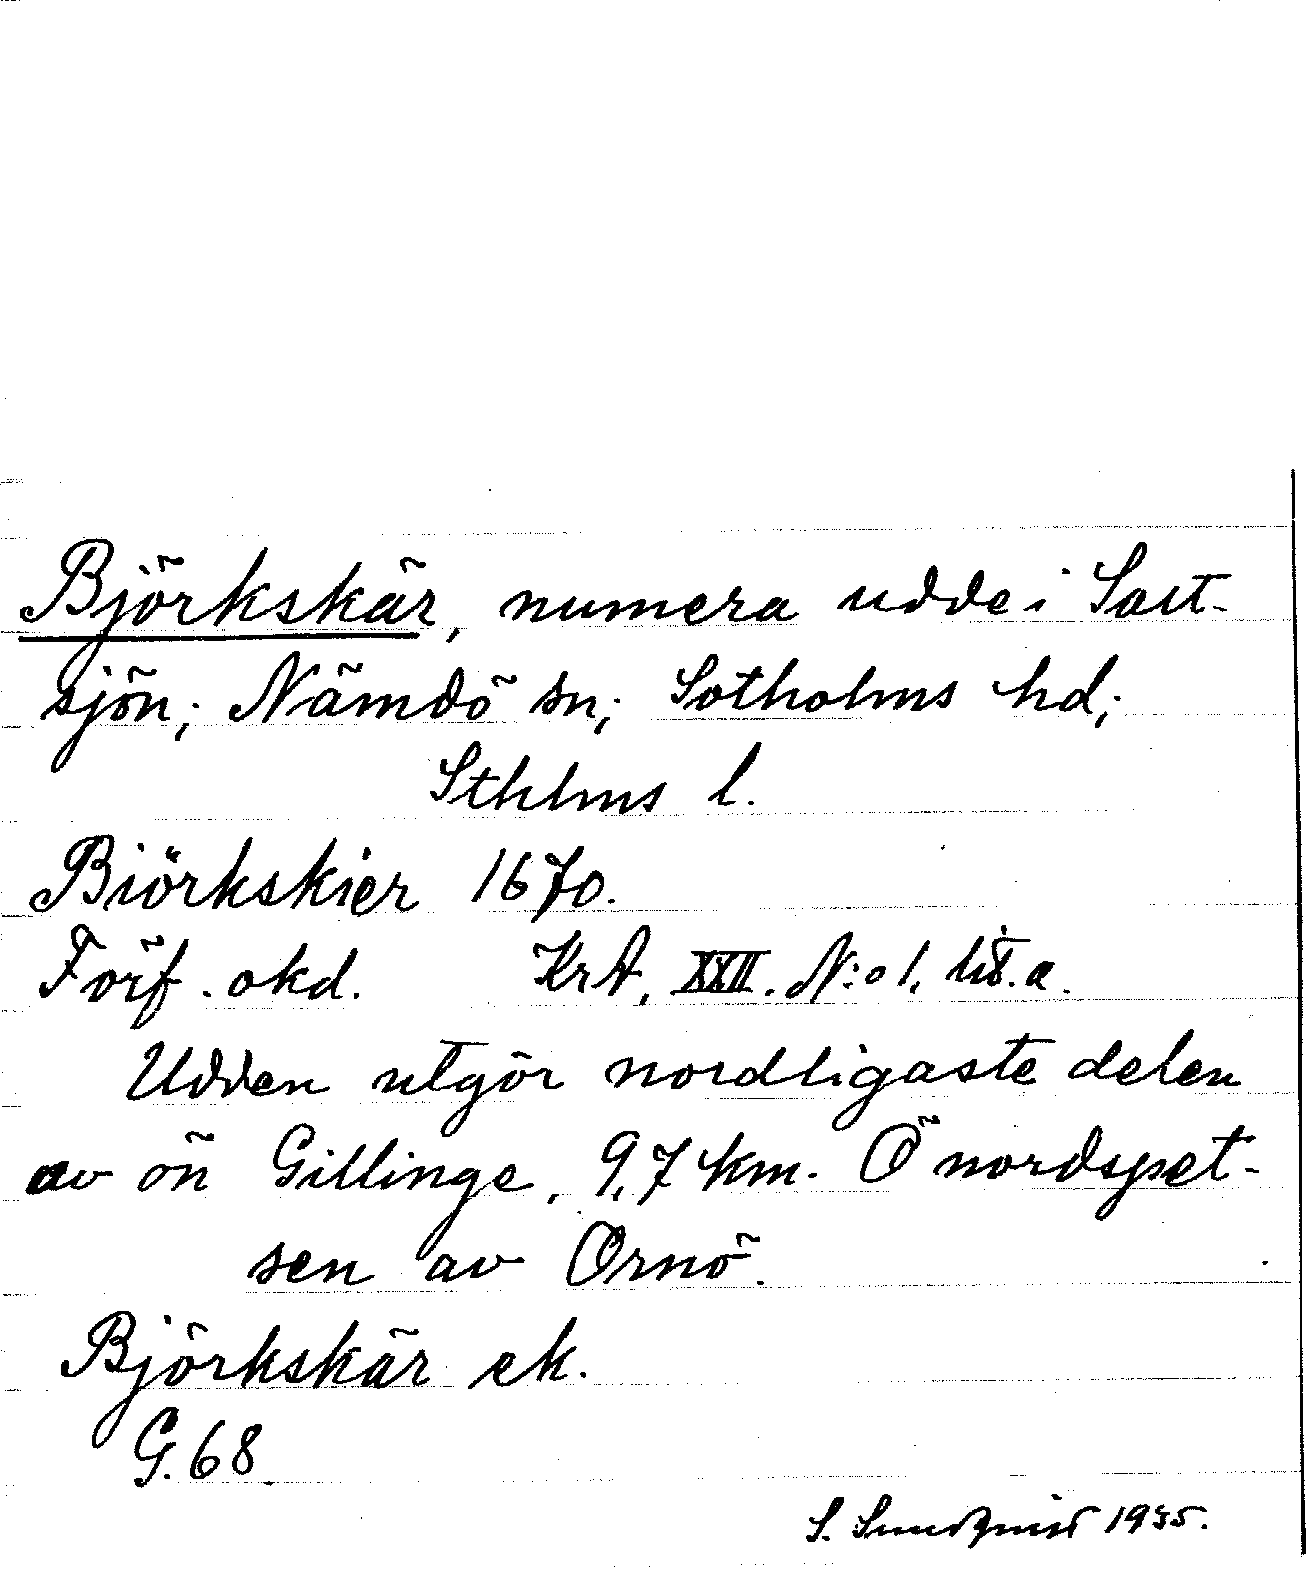 Björkskär, numera udde i Salt-
sjön; Nämdö sn; Sotholms hd;
Sthlms l.
Biörkskier 1670.
Förf. okd. KrA, XXII. N:o 1. lit. a.
Udden utgör nordligaste delen
av ön Gillinge, 9,7 km. Ö nordspet-
sen av Ornö.
Björkskär ek.
G. 68
S. Sundqvist 1935.